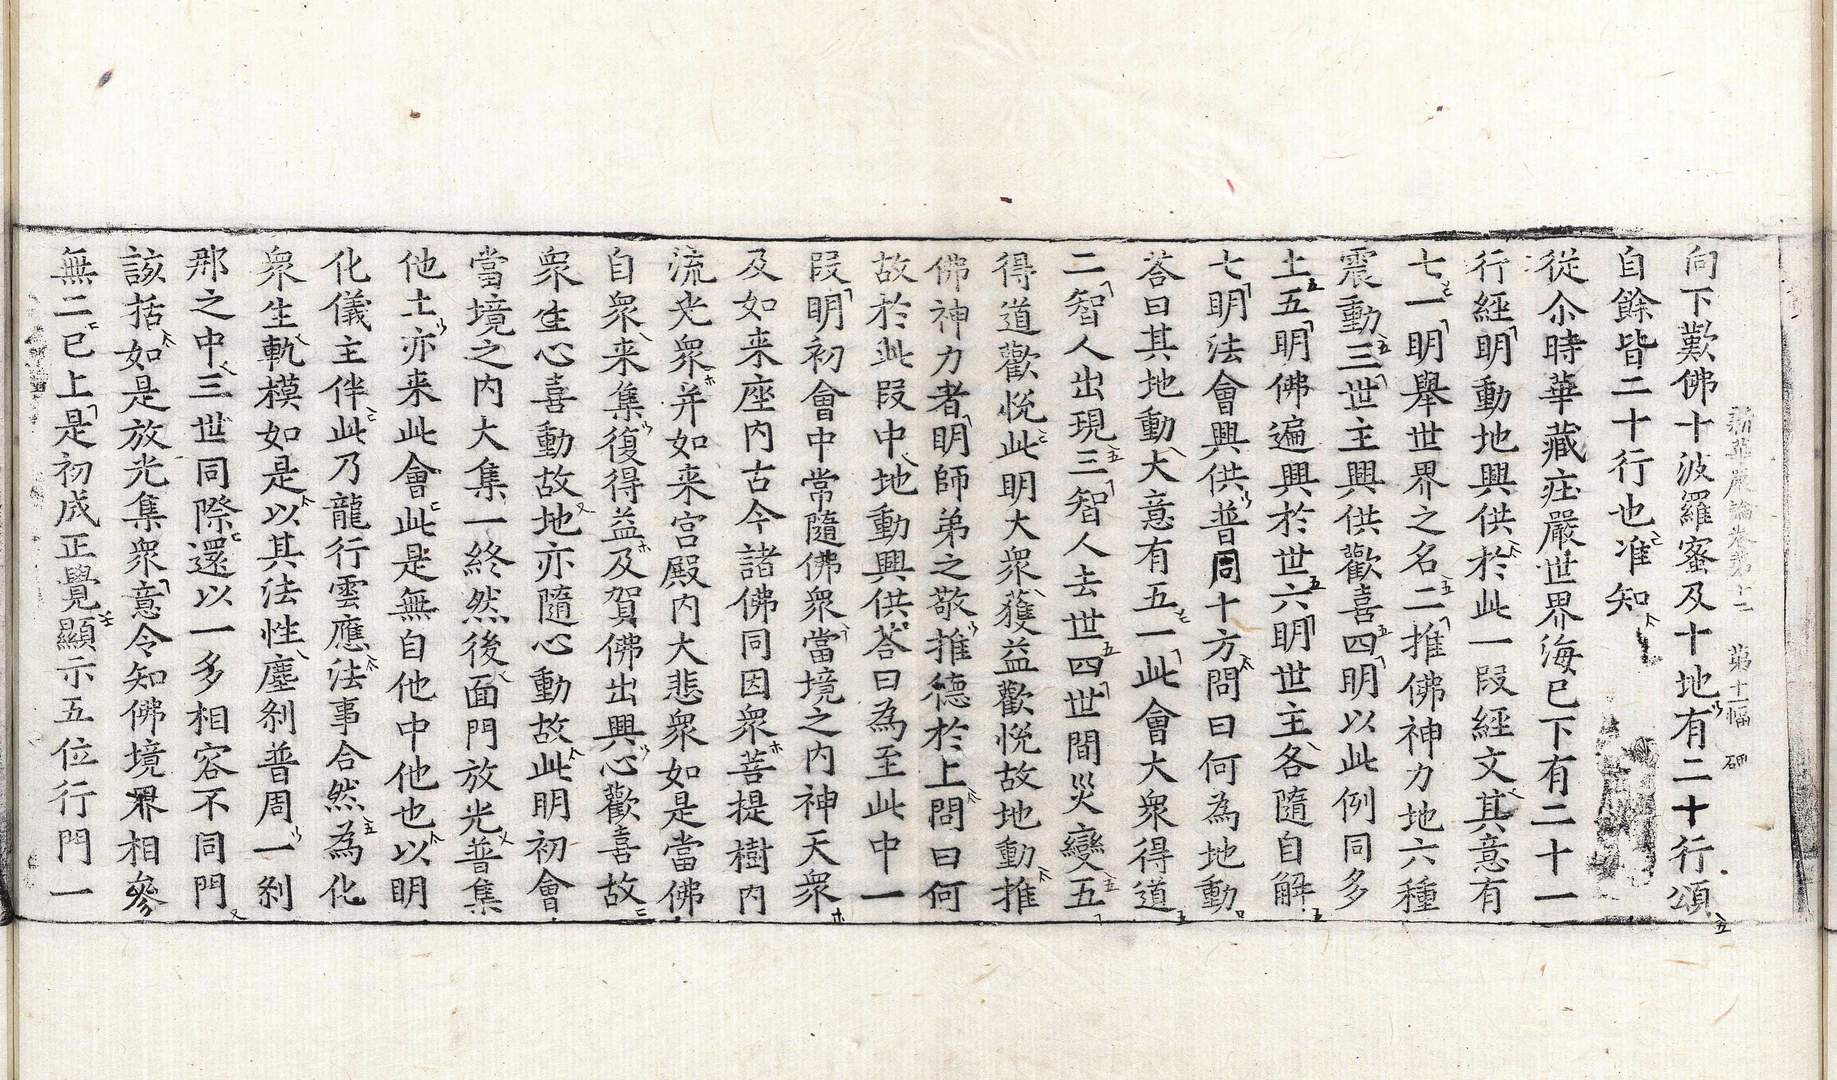 新華嚴論卷第十二 第十二幅 碑
向下歎佛十波羅蜜及十地有二十行頌
自餘皆二十行也准知
從尒時華藏庄嚴世界海已下有二十一
行經明動地興供於此一段經文其意有
七一明舉世界之名二推佛神力地六種
震動三世主興供歡喜四明以此例同多
土五明佛遍興於世六明世主各隨自解
七明法會興供普同十方問曰何為地動
荅曰其地動大意有五一此會大衆得道
二智人出現三智人去世四世間災變五
得道歡悅此明大衆獲益歡悅故地動推
佛神力者明師弟之敬推德於上問曰何
故於此段中地動興供荅曰為至此中一
段明初會中常隨佛衆當境之內神天衆
及如来座內古今諸佛同因衆菩提樹內
流光衆并如来宮殿內大悲衆如是當佛
自衆来集復得益及賀佛出興心歡喜故
衆生心喜動故地亦隨心動故此明初會
當境之內大集一終然後面門放光普集
他土亦来此會此是無自他中他也以明
化儀主伴此乃龍行雲應法事合然為化
衆生軌模如是以其法性塵剎普周一剎
那之中三世同際還以一多相容不同門
該括如是放光集衆意令知佛境界相參
無二已上是初成正覺顯示五位行門一